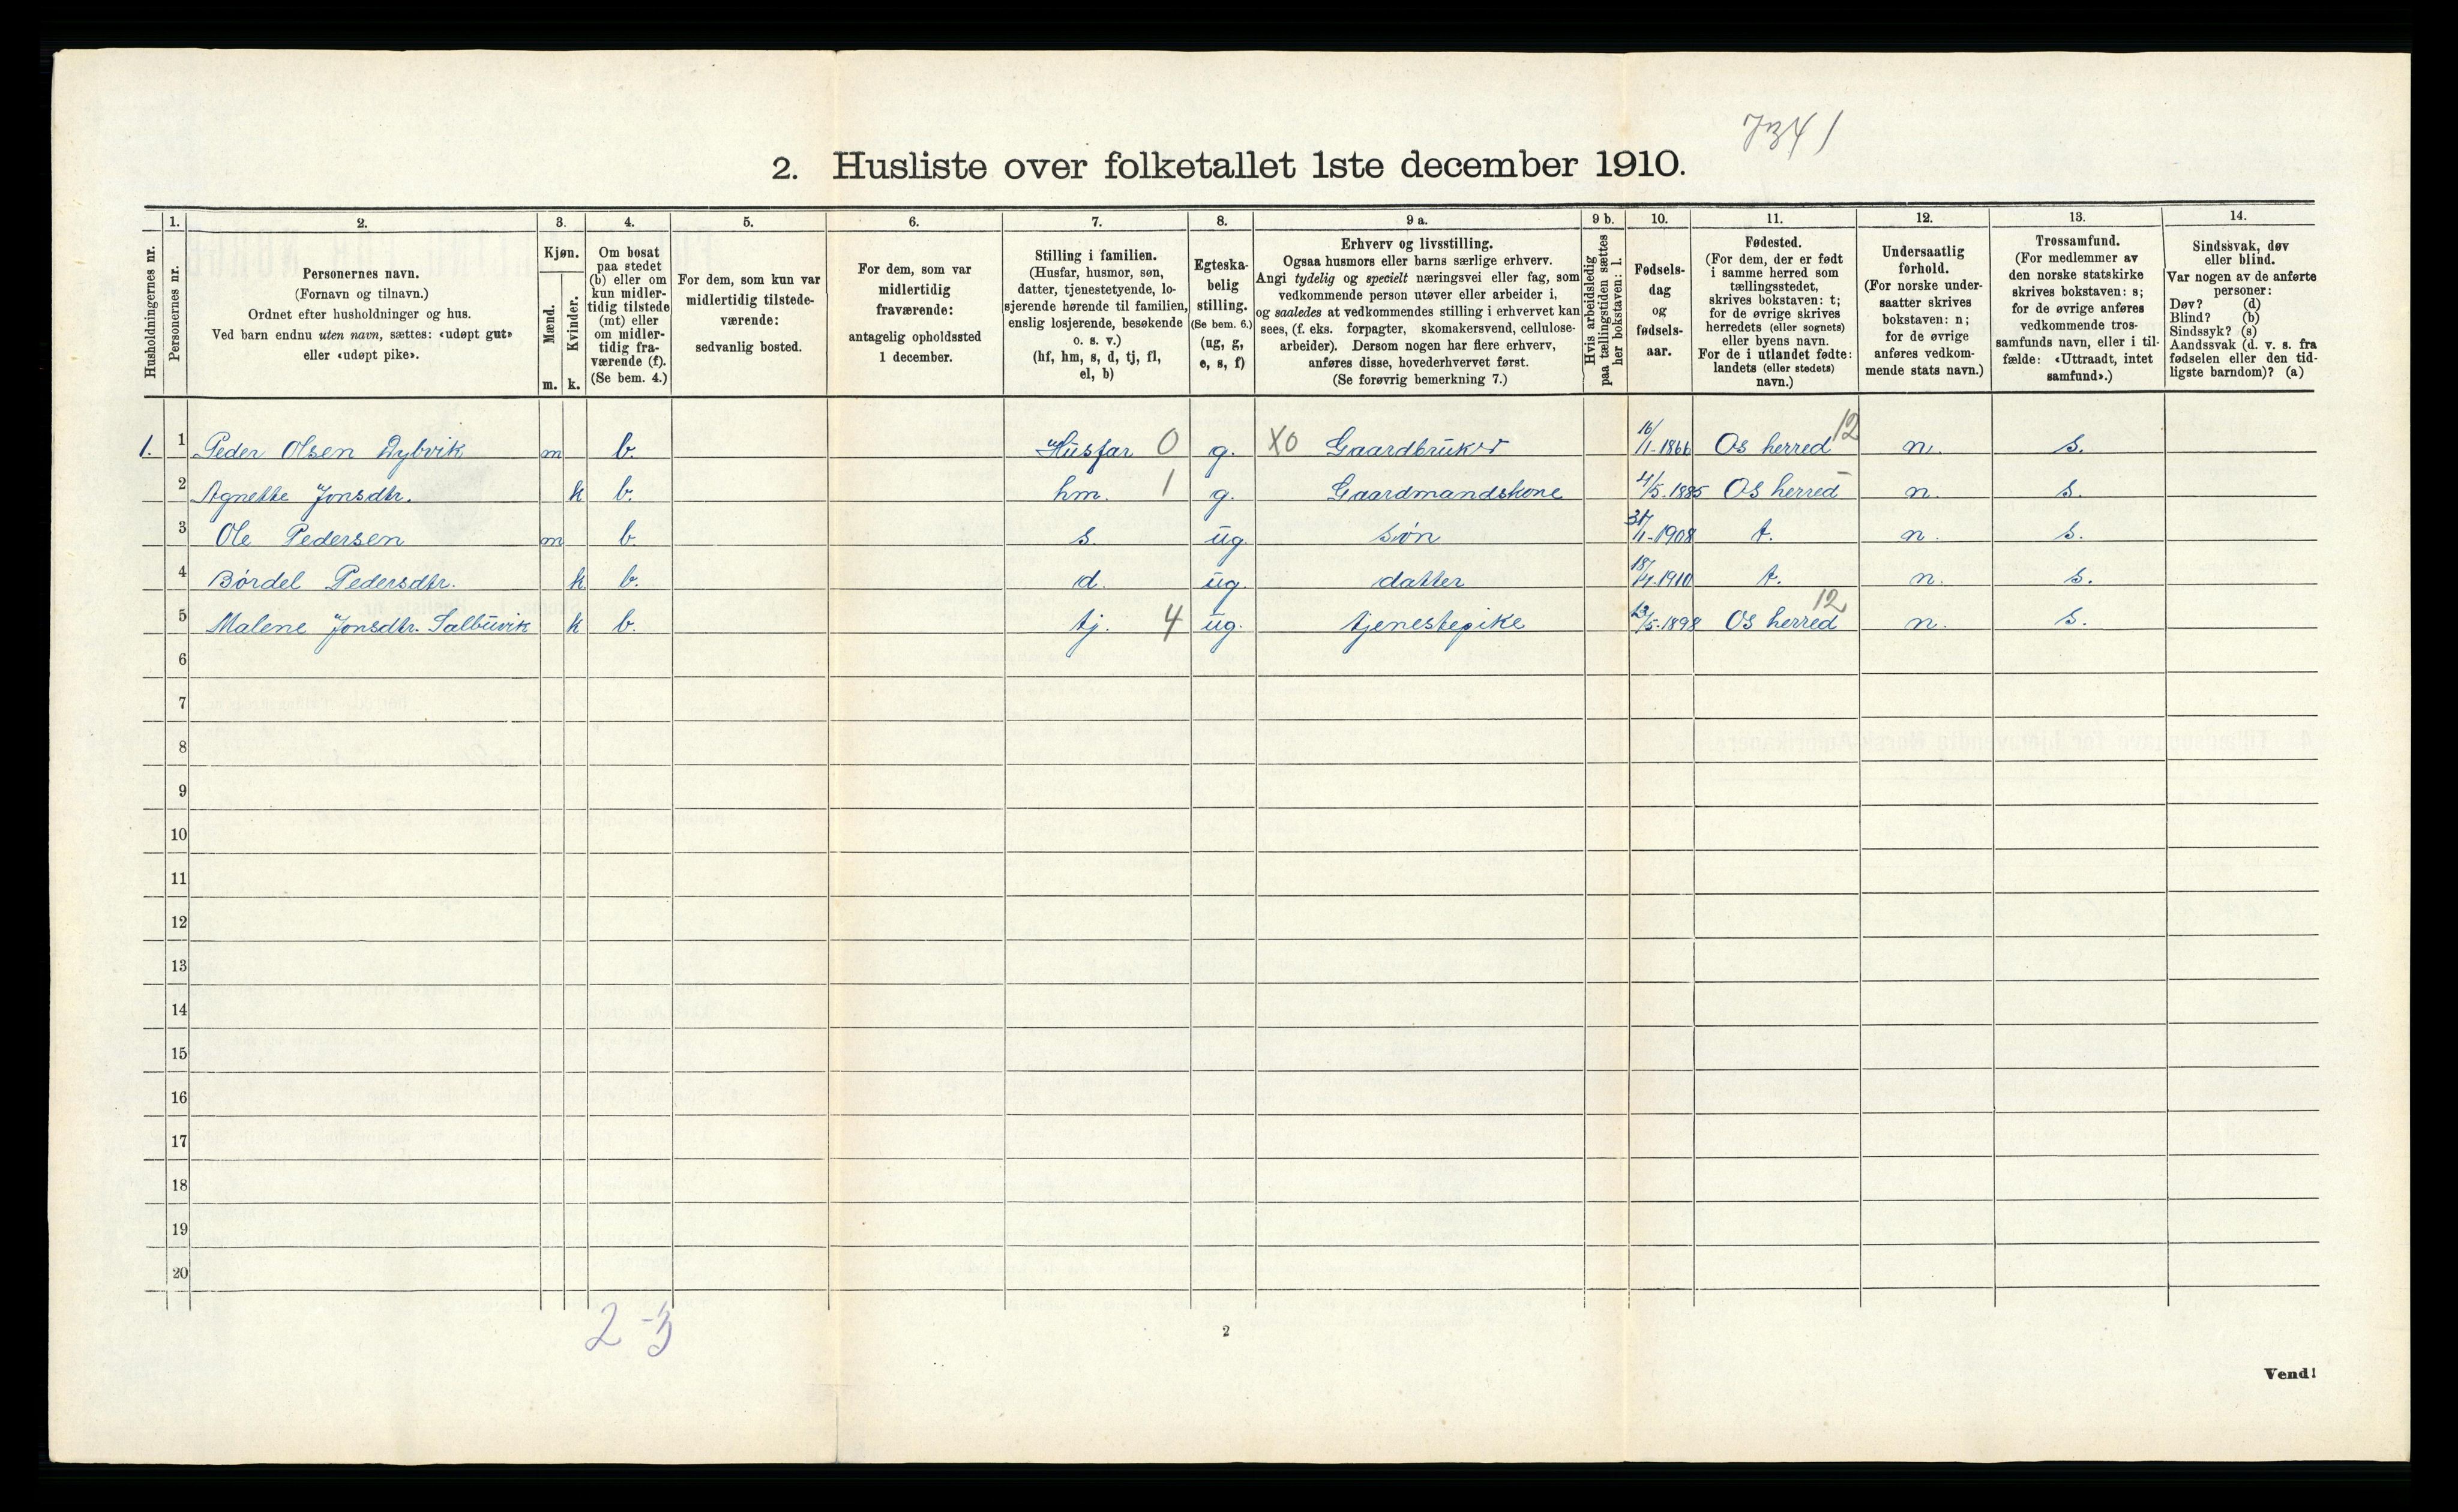 7341
2. Husliste over folketallet 1ste december 1910.
Husholdningernes nr.
1. Personernes nr.
2. Personernes navn.
(Fornavn og tilnavn.)
Ordnet efter husholdninger og hus.
Ved barn endnu uten navn, sættes: «udøpt gut»
eller «udøpt pike».
3. Kjøn.
Mænd. m.
Kvinder. k.
4. Om bosat
paa stedet
(b) eller om
kun midler-
tidig tilstede
(mt) eller
om midler-
tidig fra-
værende (f).
(Se bem. 4.)
5. For dem, som kun var
midlertidig tilstede-
værende:
sedvanlig bosted.
6. For dem, som var
midlertidig
fraværende:
antagelig opholdssted
1 december.
7. Stilling i familien.
(Husfar, husmor, søn,
datter, tjenestetyende, lo-
sjerende hørende til familien,
enslig losjerende, besøkende
o. s. v.)
(hf, hm, s, d, tj, fl,
el, b)
8. Egteska-
belig
stilling.
(Se bem. 6.)
(ug, g,
e, s, f)
9 a. Erhverv og livsstilling.
Ogsaa husmors eller barns særlige erhverv.
Angi tydelig og specielt næringsvei eller fag, som
vedkommende person utøver eller arbeider i,
og saaledes at vedkommendes stilling i erhvervet kan
sees, (f. eks. forpagter, skomakersvend, cellulose-
arbeider). Dersom nogen har flere erhverv,
anføres disse, hovederhvervet først.
(Se forøvrig bemerkning 7.)
9 b. Hvis arbeidsledig
paa tællingstiden sættes
her bokstaven: l.
10. Fødsels-
dag
og
fødsels-
aar.
11. Fødested.
(For dem, der er født
i samme herred som
tællingsstedet,
skrives bokstaven: t;
for de øvrige skrives
herredets (eller sognets)
eller byens navn.
For de i utlandet fødte:
landets (eller stedets)
navn.)
12. Undersaatlig
forhold.
(For norske under-
saatter skrives
bokstaven: n;
for de øvrige
anføres vedkom-
mende stats navn.)
13. Trossamfund.
(For medlemmer av
den norske statskirke
skrives bokstaven: s;
for de øvrige anføres
vedkommende tros-
samfunds navn, eller i til-
fælde: «Uttraadt, intet
samfund».)
14. Sindssvak, døv
eller blind.
Var nogen av de anførte
personer:
Døv? (d)
Blind? (b)
Sindssyk? (s)
Aandssvak (d. v. s. fra
fødselen eller den tid-
ligste barndom)? (a)
1. 1 Peder Olsen Dybvik m b. Husfar 0 g. X0 Gaardbruker 16/11-1866 Os herred 12 n. s.
2 Agnethe Jonsdtr. k b. hm. 1 g. Gaardmandskone 4/5.1885 Os herred n. s.
3 Ole Pedersen m b. s. ug. søn 1908 t. n. s.
4 Børdel Pedersdtr. k b. d. ug. datter 1910 t. n. s.
5 Malene Jonsdtr. Salbuvik k b. tj. 4 ug. tjenestepike 1898 Os herred 12 n. s.
6
7
8
9
10
11
12
13
14
15
16
17
18
19
20
2-3
2
Vend!